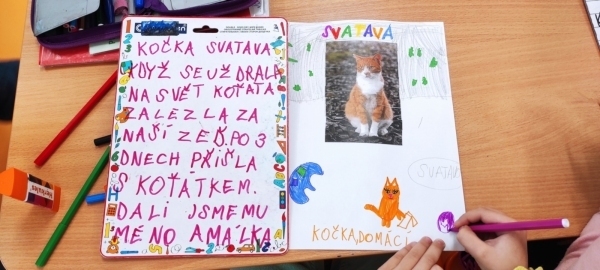 KOČKA SVATAVA
KDYŽ SE UŽ DRALA
NA SVĚT KOŤATA
ZALEZLA ZA
NAŠÍ ZEĎ.PO 3
DNECH PŘIŠLA
S KOŤÁTKEM.
DALI JSME MU
MÉNO AMÁLKA
SVATAVA
SVATAVA
KOČKA DOMÁCÍ
Herkules